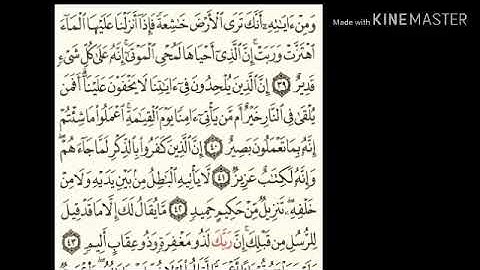 Made with KINEMASTER
وَمِنْ ءَايَٰتِهِۦٓ أَنَّكَ تَرَى ٱلْأَرْضَ خَٰشِعَةً فَإِذَآ أَنزَلْنَا عَلَيْهَا ٱلْمَآءَ
ٱهْتَزَّتْ وَرَبَتْ ۚ إِنَّ ٱلَّذِىٓ أَحْيَاهَا لَمُحْىِ ٱلْمَوْتَىٰٓ ۚ إِنَّهُۥ عَلَىٰ كُلِّ شَىْءٍ
قَدِيرٌ ٣٩ إِنَّ ٱلَّذِينَ يُلْحِدُونَ فِىٓ ءَايَٰتِنَا لَا يَخْفَوْنَ عَلَيْنَآ ۗ أَفَمَن
يُلْقَىٰ فِى ٱلنَّارِ خَيْرٌ أَم مَّن يَأْتِىٓ ءَامِنًا يَوْمَ ٱلْقِيَٰمَةِ ۚ ٱعْمَلُوا۟ مَا شِئْتُمْ ۖ
إِنَّهُۥ بِمَا تَعْمَلُونَ بَصِيرٌ ٤٠ إِنَّ ٱلَّذِينَ كَفَرُوا۟ بِٱلذِّكْرِ لَمَّا جَآءَهُمْ ۖ
وَإِنَّهُۥ لَكِتَٰبٌ عَزِيزٌ ٤١ لَّا يَأْتِيهِ ٱلْبَٰطِلُ مِنۢ بَيْنِ يَدَيْهِ وَلَا مِنْ
خَلْفِهِۦ ۖ تَنزِيلٌ مِّنْ حَكِيمٍ حَمِيدٍ ٤٢ مَّا يُقَالُ لَكَ إِلَّا مَا قَدْ قِيلَ
لِلرُّسُلِ مِن قَبْلِكَ ۚ إِنَّ رَبَّكَ لَذُو مَغْفِرَةٍ وَذُو عِقَابٍ أَلِيمٍ ٤٣